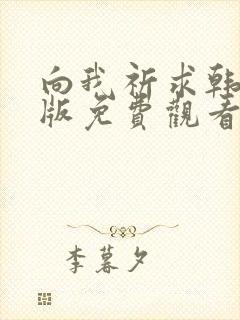 向我祈求韩
版免費觀看
李暮夕